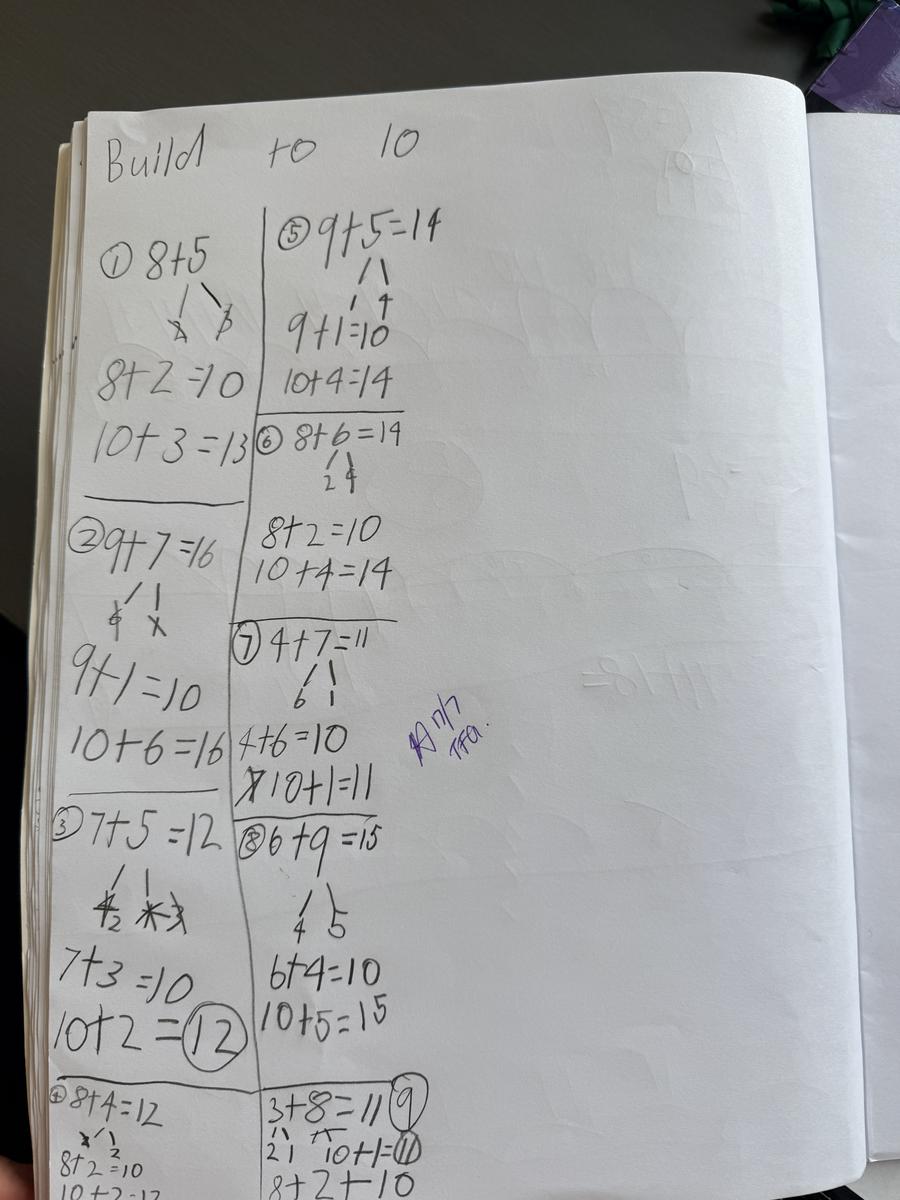 Build to 10
① 8+5
2 3
8+2=10
10+3=13
② 9+7=16
6 1
9+1=10
10+6=16
③ 7+5=12
2 3
7+3=10
10+2=12
④ 8+4=12
2 2
8+2=10
10+2=12
⑤ 9+5=14
1 4
9+1=10
10+4=14
⑥ 8+6=14
2 4
8+2=10
10+4=14
⑦ 4+7=11
6 1
4+6=10
10+1=11
⑧ 6+9=15
4 5
6+4=10
10+5=15
3+8=11 ⑨
2 1 10+1=11
8+2+10